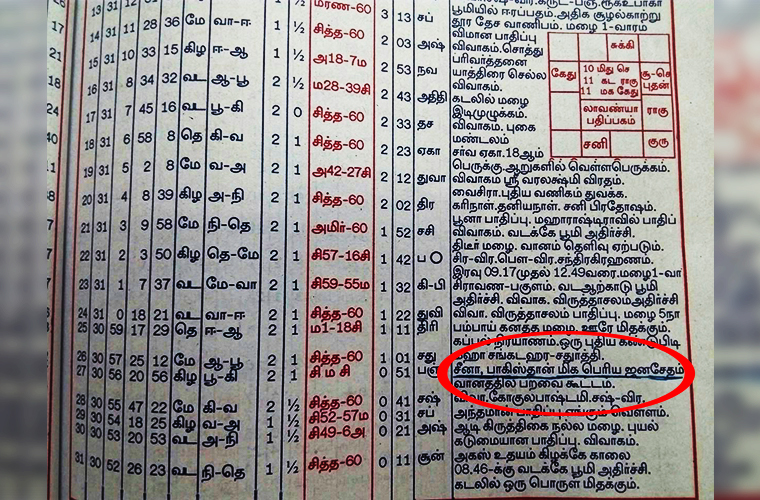 மரண-60
பூமியில் ஈரப்பதம்.அதிக சூழல்காற்று
14 31 11 28 36 மே வா-ஈ 2 ½ சித்த-60 3 13 சப் தூர தேச வாணிபம். மழை 1-வாரம்
விமான பாதிப்பு
15 31 10 33 15 கிழ ஈ-ஆ 1 ½ அ18-7ம 2 03 அஷ் விவாகம்.சொத்து
பரிவர்த்தனை
16 31 8 34 32 வட ஆ-பூ 2 ½ ம28-39சி 2 53 நவ யாத்திரை செல்ல
விவாகம்.
17 31 7 45 16 வட பூ-கி 2 0 சித்த-60 2 43 அதிதி கடலில் மழை
இடிமுழுக்கம்.
18 31 6 58 8 தெ கி-வ 2 1 சித்த-60 2 33 தச விவாகம். புகை
மண்டலம்
19 31 5 2 8 மே வ-அ 2 1 அ42-27சி 2 23 ஏகா சர்வ ஏகா.18ஆம்
பெருக்கு.ஆறுகளில் வெள்ளபெருக்கம்.
2 12 துவா விவாகம் ஸ்ரீ வரலக்ஷ்மி விரதம்.
20 31 4 8 39 கிழ அ-நி 2 1 சித்த-60 வைசிரா.புதிய வணிகம் துவக்க.
2 02 திர கரிநாள்.தனியநாள். சனி பிரதோஷம்.
21 31 3 9 58 மே நி-தெ 2 1 அமிர்-60 பூனா பாதிப்பு. மஹாராஷ்டிராவில் பாதிப்
1 52 சசி விவாகம். வடக்கே பூமி அதிர்ச்சி.
22 31 2 3 50 கிழ தெ-மே 2 1 சி57-16சி திடீர் மழை. வானம் தெளிவு ஏற்படும்.
1 42 ப சிர-விர.பௌ-விர.சந்திரகிரஹணம்.
23 31 1 7 37 வட மே-வா 2 1 சி59-55ம இரவு 09.17முதல் 12.49வரை.மழை1-வா
1 32 கி-பி சிராவண-பகுளம். வட ஆற்காடு பூமி
அதிர்ச்சி. விவாக. விருத்தாசலம்அதிர்ச்சி
24 31 0 18 21 வட வா-ஈ 2 1 சித்த-60 1 22 துவி விவா. விருத்தாசலம் பாதிப்பு. மழை 5நா
25 30 59 17 29 தெ ஈ-ஆ 2 1 ம1-18சி 1 11 திரி பம்பாய் கனத்த மழை. ஊரே மிதக்கும்.
கப்பல் நிர்யாணம்.ஒரு புதிய கண்டுபிடி
26 30 57 25 12 மே ஆ-பூ 2 1 சித்த-60 1 01 சது மஹா சங்கடஹர-சதுர்த்தி.
27 30 56 20 56 கிழ பூ-கி 2 1 சி ம சி 0 51 பஞ் சீனா, பாகிஸ்தான் மிக பெரிய ஜனசேதம்
வானத்தில் பறவை கூட்டம்.
28 30 55 47 22 மே கி-வ 2 ½ சித்த-60 0 41 சஷ் விவா.கோகுலபாஷ்டமி.சஷ்-விர.
29 30 54 18 25 கிழ வ-அ 1 ½ சி52-57ம 0 31 சப் அந்தமான் பாதிப்பு எங்கும் வெள்ளம்.
30 30 53 20 53 வட அ-நி 2 ½ சி49-6அ 0 21 அஷ் ஆடி கிருத்திகை நல்ல மழை. புயல்
கடுமையான பாதிப்பு. விவாகம்.
31 30 52 26 23 வட நி-தெ 1 ½ சித்த-60 0 11 சூன் அகஸ் உதயம் கிழக்கே காலை
08.46-க்கு வடக்கே பூமி அதிர்ச்சி.
கடலில் ஒரு பொருள் மிதக்கும்.
சுக்கி
கேது
10 மிது செ
11 கட ராகு
11 மக கேது
சூ-செ
புதன்
லாவண்யா
பதிப்பகம்
ராகு
சனி
குரு